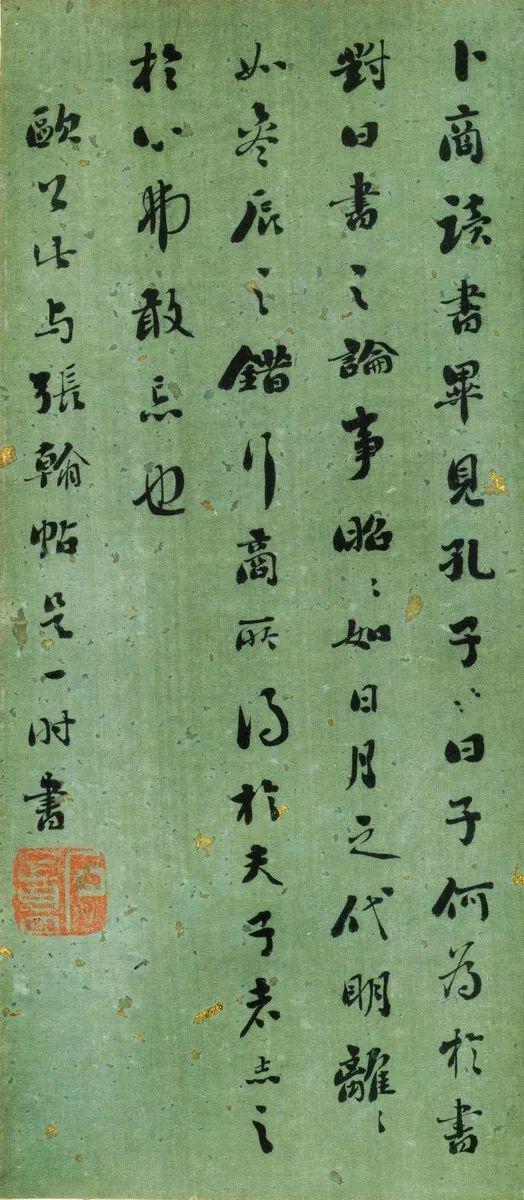 卜商讀書畢見孔子〻曰子何為於書
對曰書之論事昭〻如日月之代明離〻
如參辰之錯行商所得於夫子者志之
於心弗敢忘也
歐公此与張翰帖是一时書